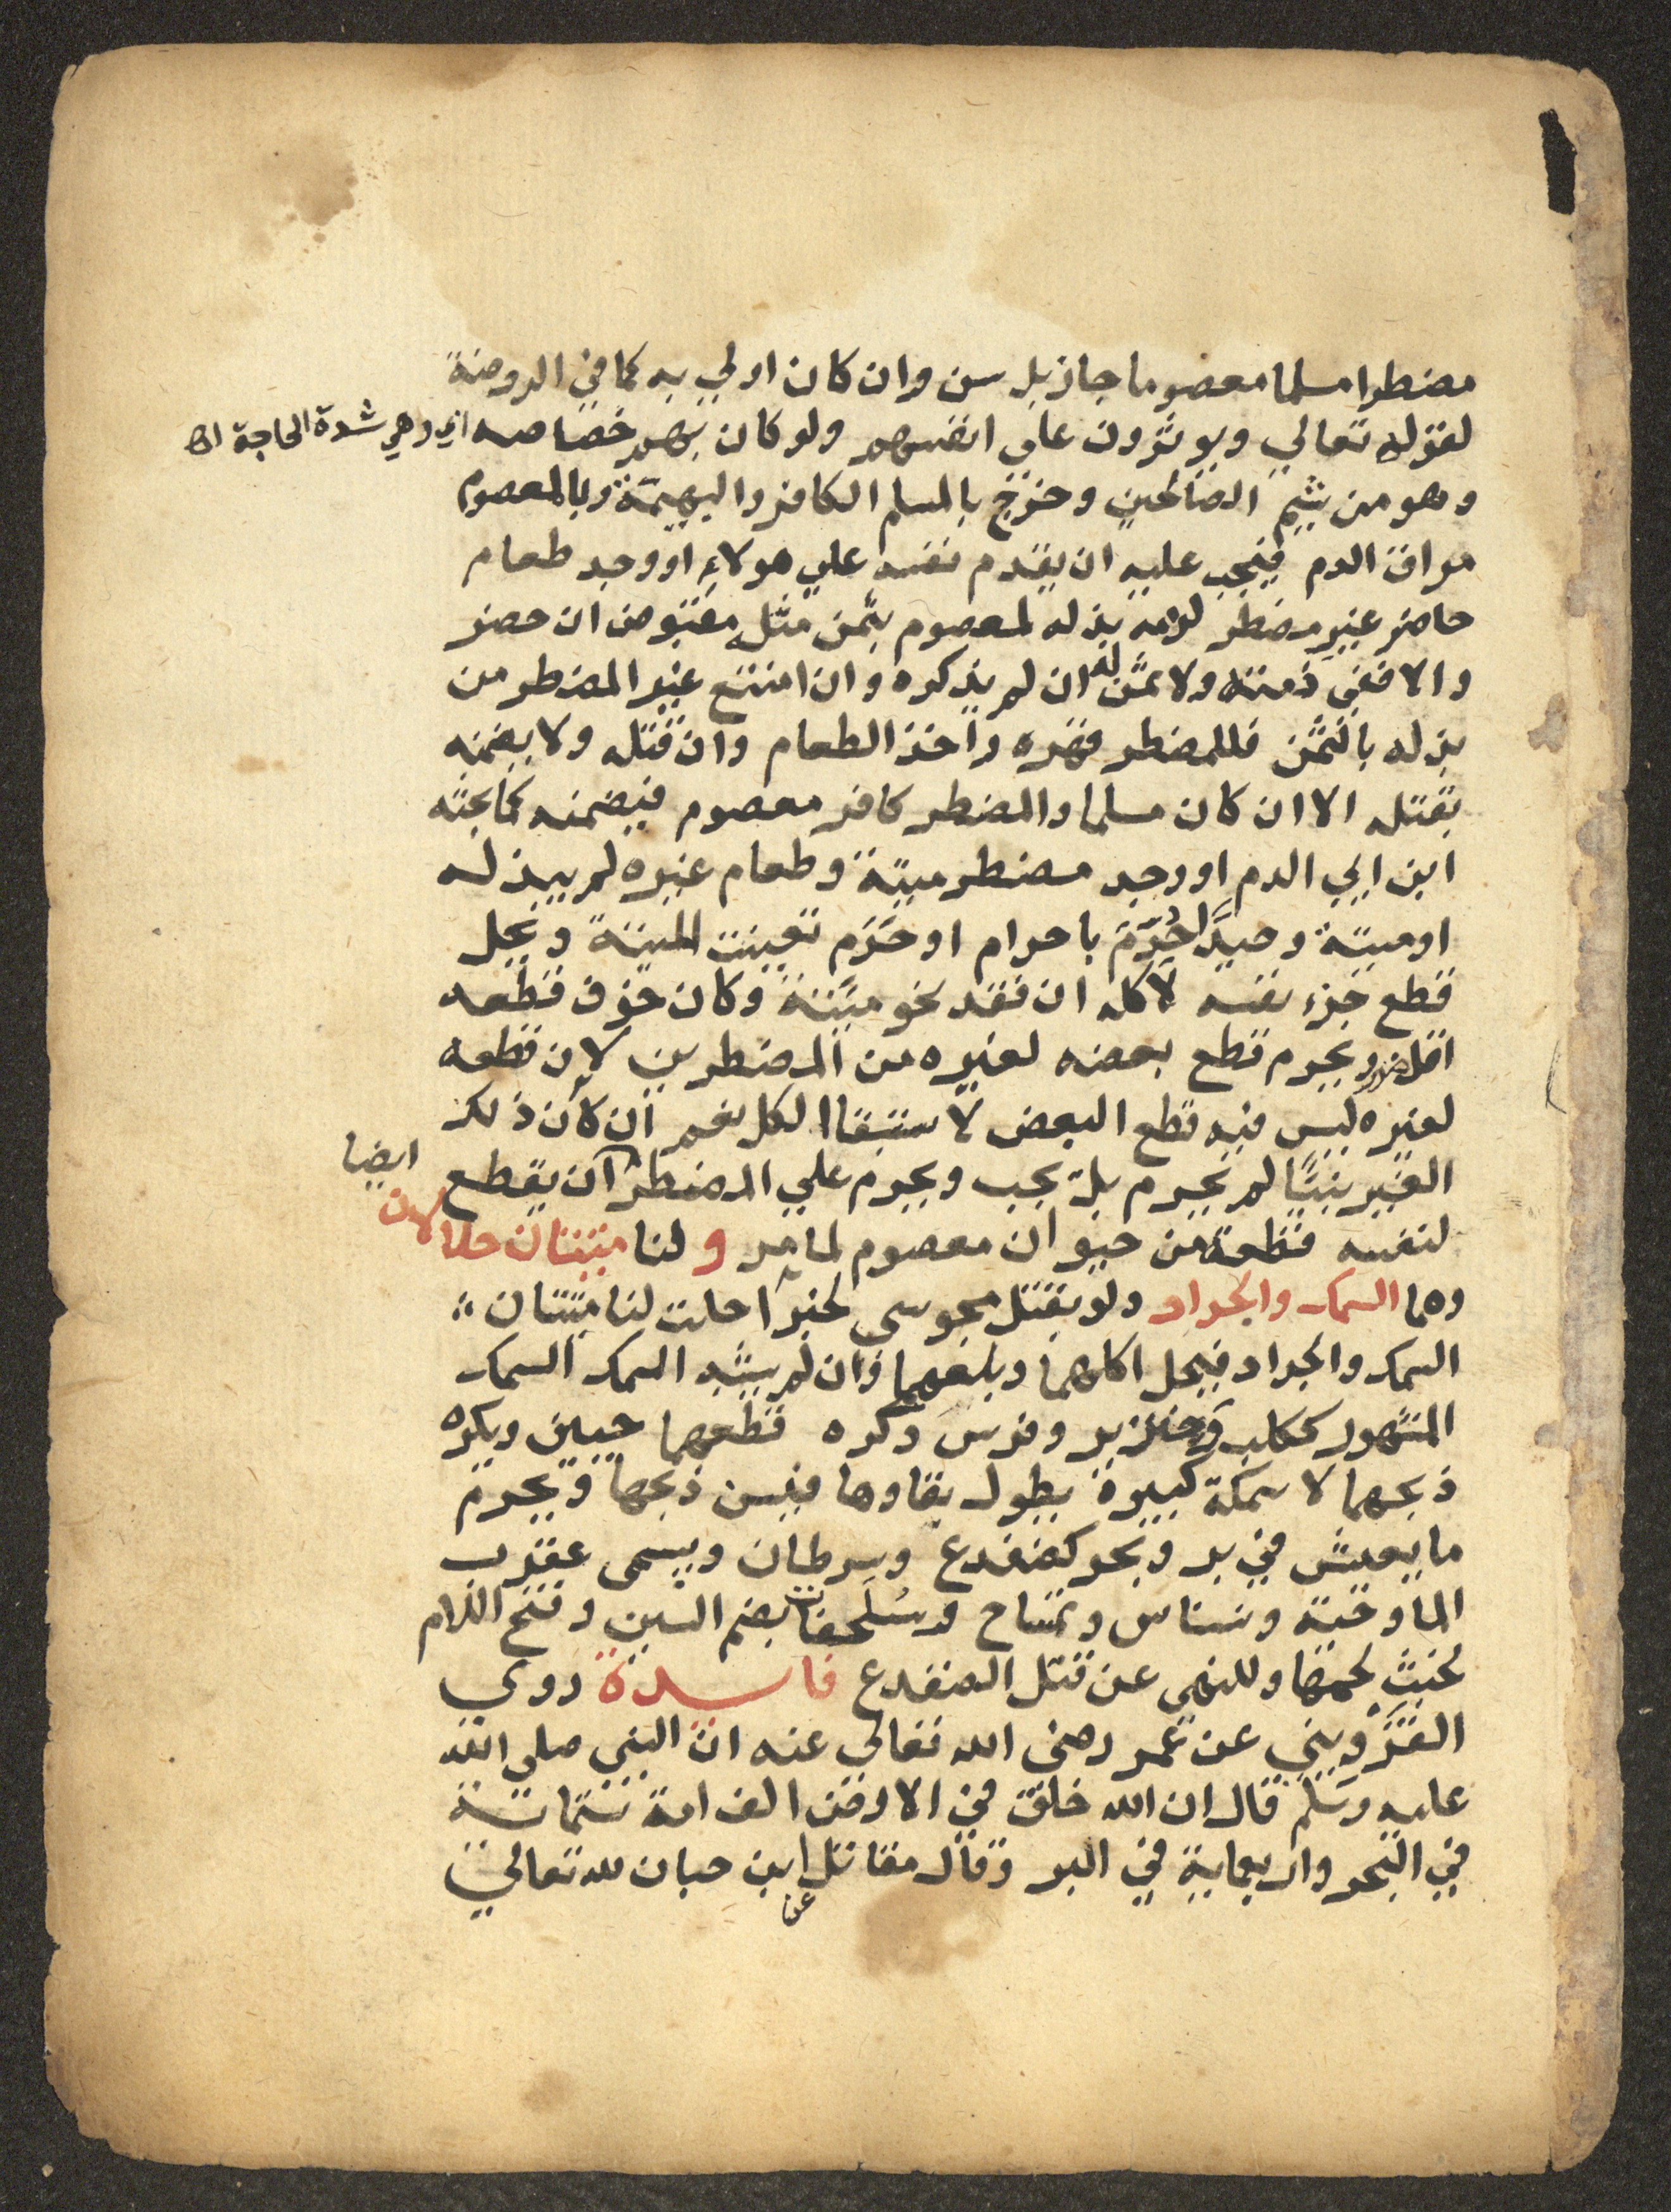 مضطرا مسلما معصوما جاز بل سن وان كان اولي به كما في الروضة
لقوله تعالي ويوثرون على انفسهم ولو كان بهم خصاصه اي وهي شدة الحاجة اه
وهو من شيم الصالحين وخرج بالمسلم الكافر والبهيمة وبالمعصوم
مراق الدم فيجب عليه ان يقدم نفسه علي هولاءِ او وجد طعام
حاضر غير مضطر لزمه بذله لمعصوم بثمن مثل مقبوض ان حضر
والا ففي ذمته ولا ثمن له ان لم يذكره وان امتنع غير المضطر من
بذله بالثمن فللمضطر قهره واخذ الطعام وان قتله ولا يضمنه
بقتله الا ان كان مسلما والمضطر كافر معصوم فيضمنه كما بحثه
ابن ابي الدم او وجد مضطر ميتة وطعام غيره لم يبذله
او ميتة وصيدًا حُرّمَ باحرام او حَرَم تعينت الميتة ويحل
قطع جزء نفسه لاكله ان فقد نحو ميتة وكان خوف قطعه
اقل ضرر ويحرم قطع بعضه لغيره من المضطرين لان قطعه
لغيره ليس فيه قطع البعض لاستبقاا لكل نعم ان كان ذلك
الغير نبيًا لم يحرم بل يجب ويحرم علي المضطر ان يقطع ايضا
لنفسه قطعة من حيوان معصوم لما مر ولنا ميتتان حلالان
وهما السمك والجراد ولو بقتل مجوسي لخبر احلت لنا ميتتان
السمك والجراد فيحل اكلهما وبلعهما وان لم يشبه السمك السمك
المشهور ككلب وخنزير وفرس وكره قطعهما حيين ويكره
ذبحهما لا سمكة كبيرة يطول بقاوها فيسن ذبحها ويحرم
ما يعيش في بر وبحر كضفدع وسرطان ويسمى عقرب
الما وحية ونسناس وتمساح وسُلَحفات بضم السين وفتح اللام
لخبث لحمها وللنهى عن قتل الضفدع فايدة روي
القزويني عن عمر رضى الله تعالى عنه ان النبي صلى الله
عليه وسلم قال ان الله خلق في الارض الف امة ستماية
في البحر واربعماية في البر وقال مقاتل ابن حبان لله تعالي
عن